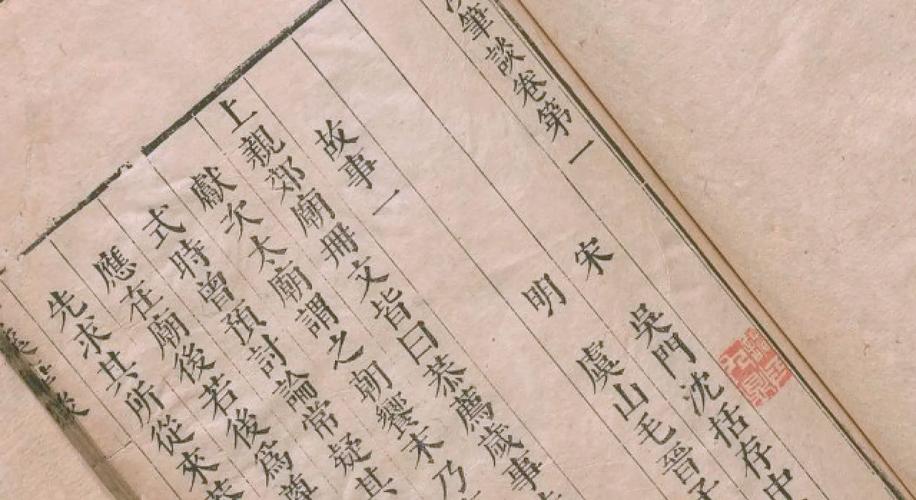 筆談卷第一
宋 吳門沈括存中
明 虞山毛晉子
故事一
上親郊廟冊文皆曰恭薦歲事
獻次太廟謂之朝饗末乃
式時曾預討論常疑其
應在廟後若後爲尊
先求其所從來